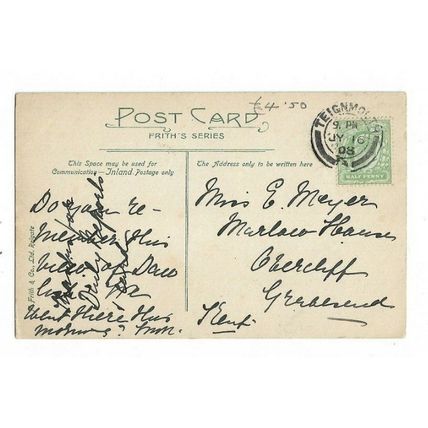 £4.50
POST CARD
FRITH'S SERIES
TEIGNMOUTH
9. PM
JY 16
08
HALF PENNY
This Space may be used for
Communication—Inland Postage only
The Address only to be written here
Do you re-
member this
view of Daw
Went there this
morning?
Daily reports
Miss E. Meyer
Marlow House
Overcliff
Gravesend
Kent
Frith & Co., Ltd. Reigate